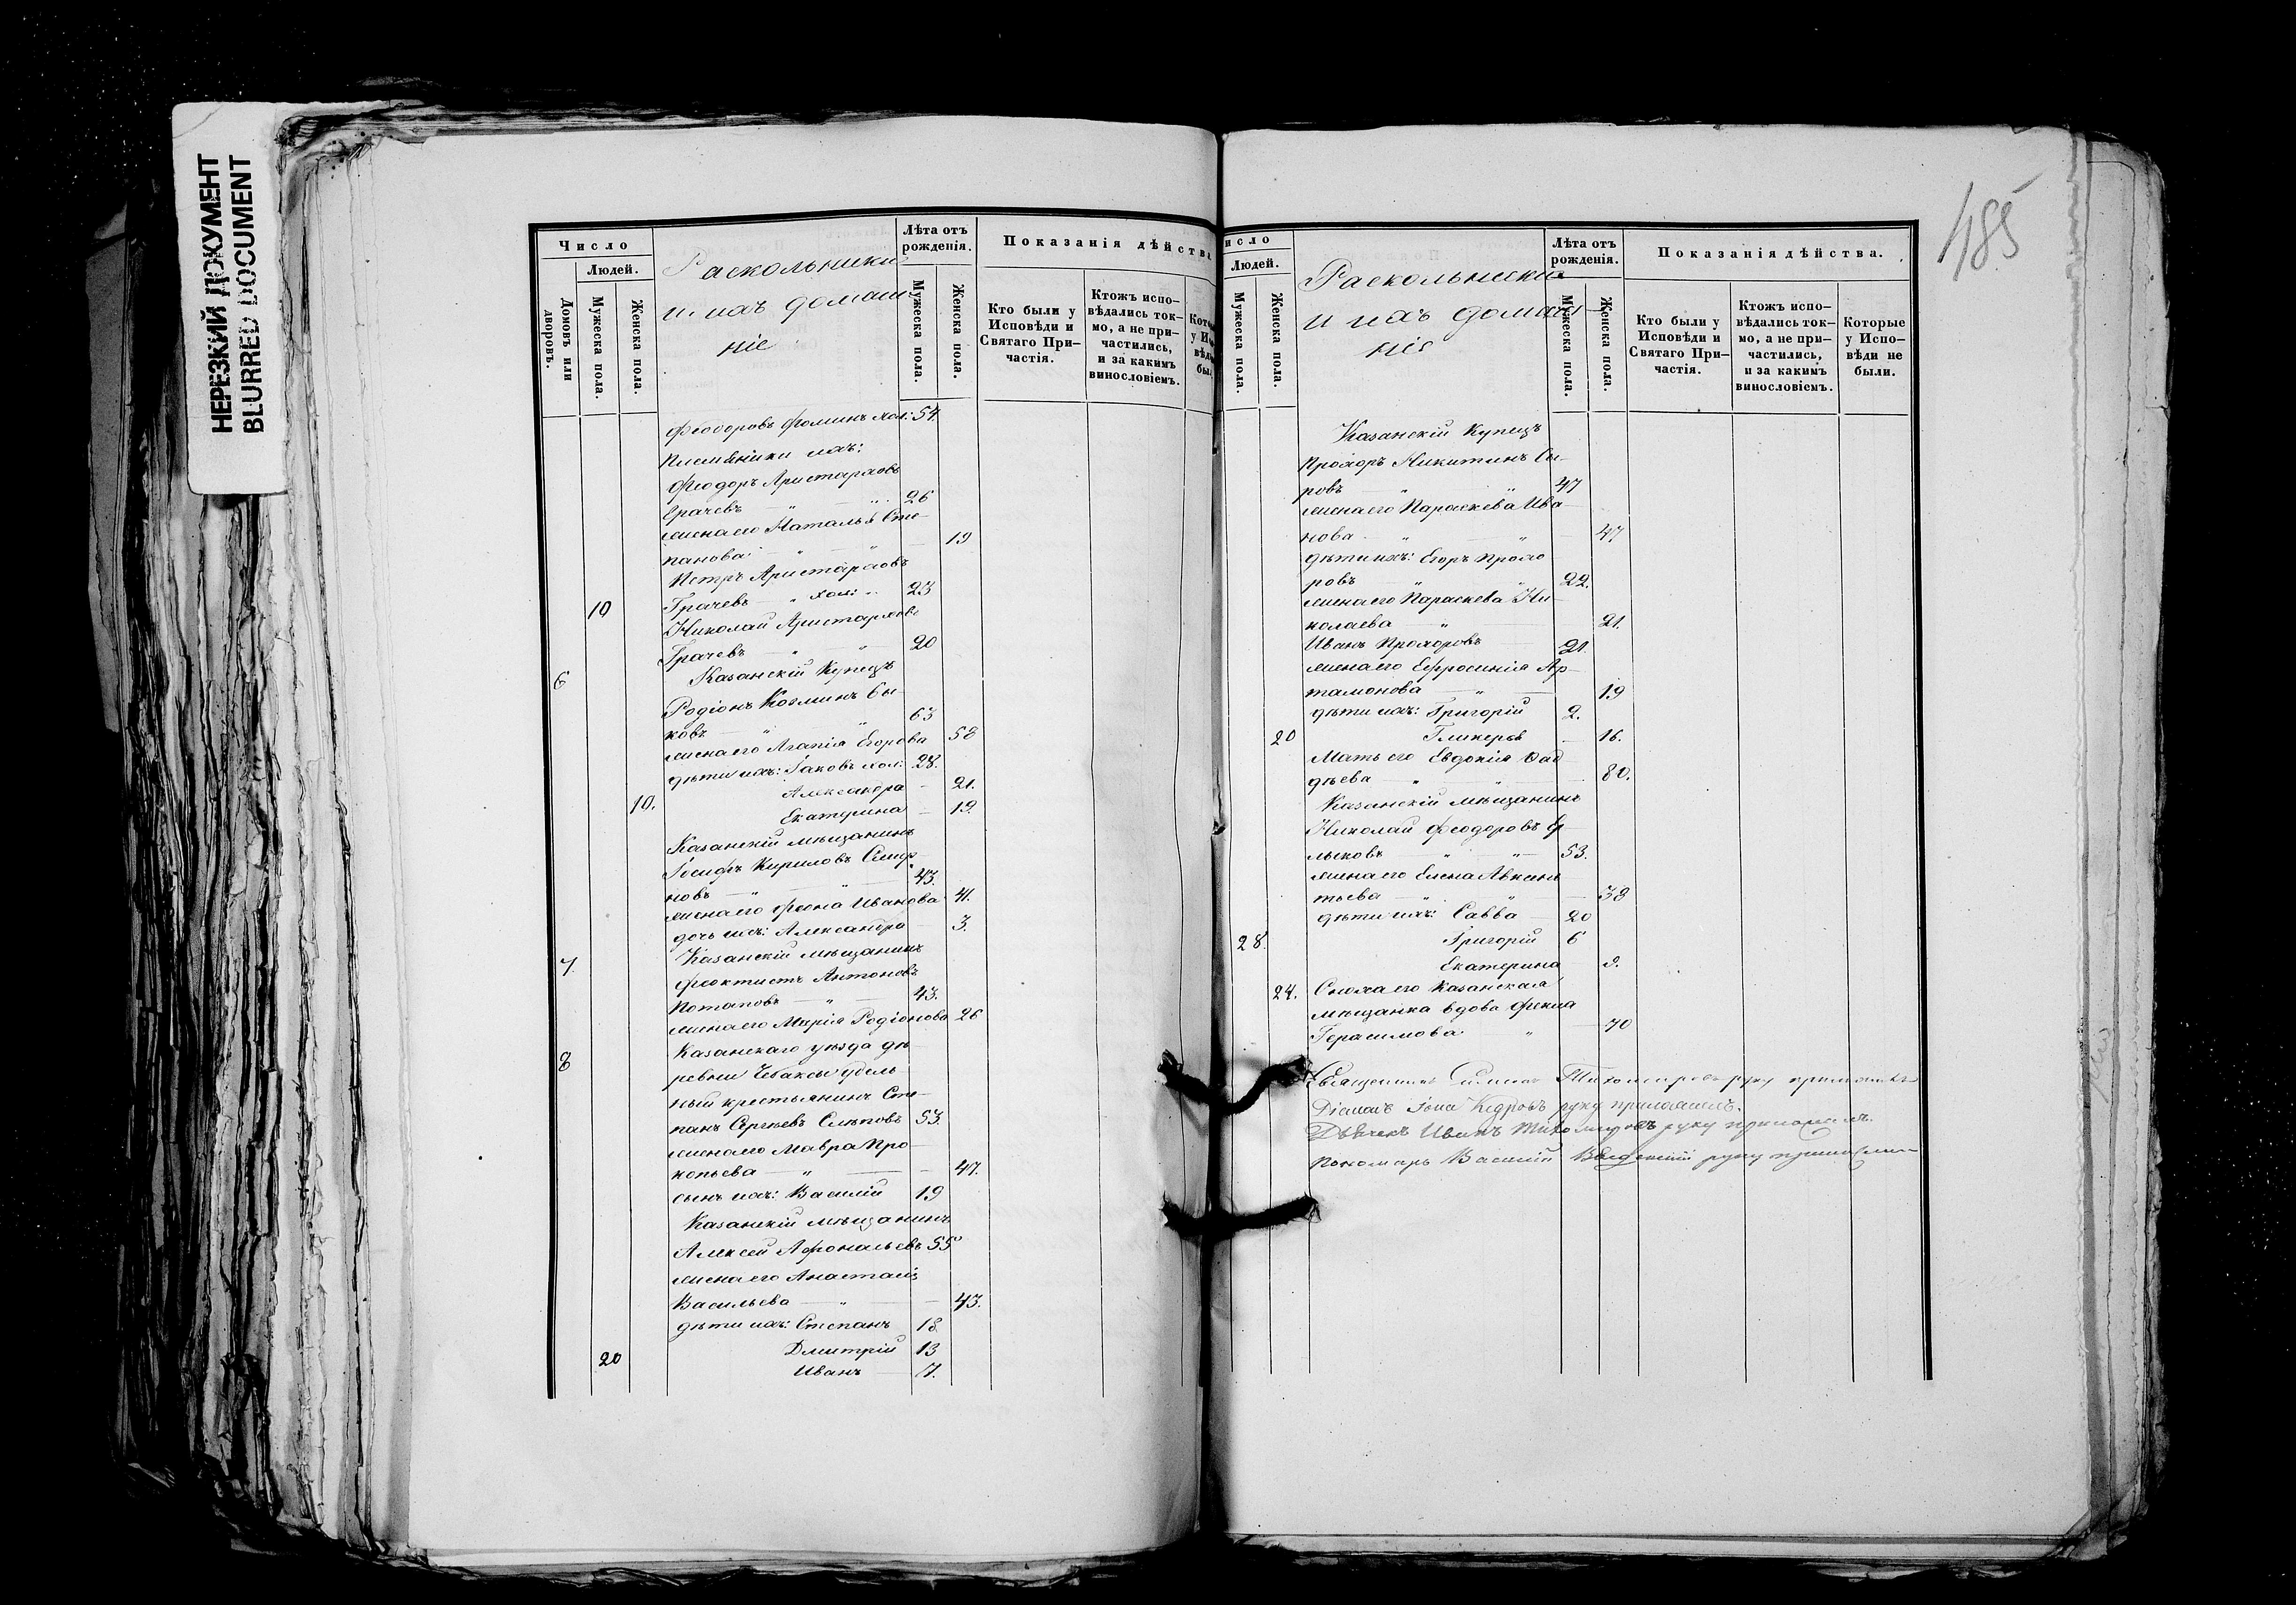 НЕРЕЗКИЙ ДОКУМЕНТ
BLURRED DOCUMENT
Число
Людей.
Домовъ или дворовъ.
Мужеска пола.
Женска пола.
Раскольники
и ихъ домаш-
ніе
Лѣта отъ рожденія.
Мужеска пола.
Женска пола.
Показанія дѣйства
Кто были у Исповѣди и Святаго Причастія.
Ктожъ исповѣдались токмо, а не причастились, и за какимъ винословіемъ.
Феодоровъ Фоминъ хол: 54.
Племяники ихъ:
Феодоръ Аристарховъ
Грачевъ — " — " 26
жена его Наталья Сте-
панова — " — " 19
Петръ Аристарховъ
10 Грачевъ — " хол: 23
Николай Аристарховъ
Грачевъ — " — " 20
6 Казанскій Купецъ
Родіонъ Козминъ Бы-
ковъ — " — " 63
жена его Агапія Егорова 58
дѣти ихъ: Іаковъ хол: 28.
Александра — 21.
10. Екатерина — 19.
Казанскій мѣщанинъ
Іосифъ Кириловъ
новъ — " — " 43.
жена его Феона Иванова 41.
дочь ихъ: Александра 3.
7. Казанскій мѣщанинъ
Феоктистъ Антоновъ
Потаповъ — " — 43.
жена его Марія Родіонова 26
Казанскаго уѣзда де-
8 ревни Чебаксы удель-
ный крестьянинъ Сте-
панъ Сергѣевъ Слѣповъ 53.
жена его Мавра Про-
копьева — " — 47.
сынъ ихъ: Василій 19
Казанскій мѣщанинъ
Алексей Афонасьевъ 55
жена его Анастасія
Васильева — " — 43.
дѣти ихъ: Степанъ 18.
20 Дмитрій 13
Иванъ — 7.
485
исло
Людей.
Мужеска пола.
Женска пола.
Раскольники
и ихъ домаш-
ніе
Лѣта отъ рожденія.
Мужеска пола.
Женска пола.
Показанія дѣйства.
Кто были у Исповѣди и Святаго Причастія.
Ктожъ исповѣдались токмо, а не причастились, и за какимъ винословіемъ.
Которые у Исповѣди не были.
Казанскій Купецъ
Прохоръ Никитинъ Сы-
ровъ — " — " 47
жена его Параскева Ива-
нова — " — " 47.
дѣти ихъ: Егоръ Прохо
ровъ — " — " 22.
жена его Параскева Ни-
колаева — " — 21.
Иванъ Прохоровъ — 21.
жена его Ефросинія Ар-
тамонова — " — 19
дѣти ихъ: Григорій 2.
20 Гликерія — 16.
Мать его Евдокія Фад
дѣева — " — " 80.
Казанскій мѣщанинъ
Николай Феодоровъ
— " — " 53.
жена его Елена
тьева — " — " 38
дѣти ихъ: Савва — 20
28. Григорій 6
Екатерина 9.
24. Сноха его Казанская
мѣщанка вдова Фекла
Герасимова — " — 70
Священникъ Тихомировъ руку приложилъ
Діаконъ Іона Кедровъ руку приложилъ.
Дьячекъ Иванъ Тихомировъ руку приложилъ.
Пономарь Василій Введенскій руку приложилъ